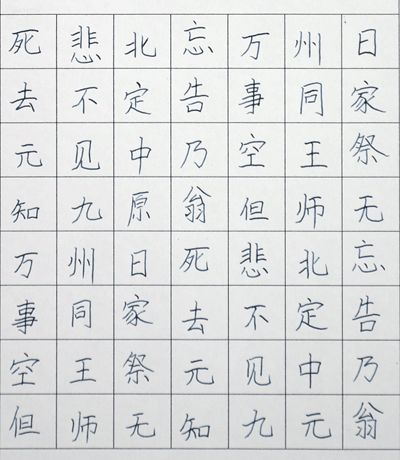 死去元知万事空但
悲不见九州同王师
北定中原日家祭无
忘告乃翁死去元知
万事空但悲不见九
州同王师北定中元
日家祭无忘告乃翁